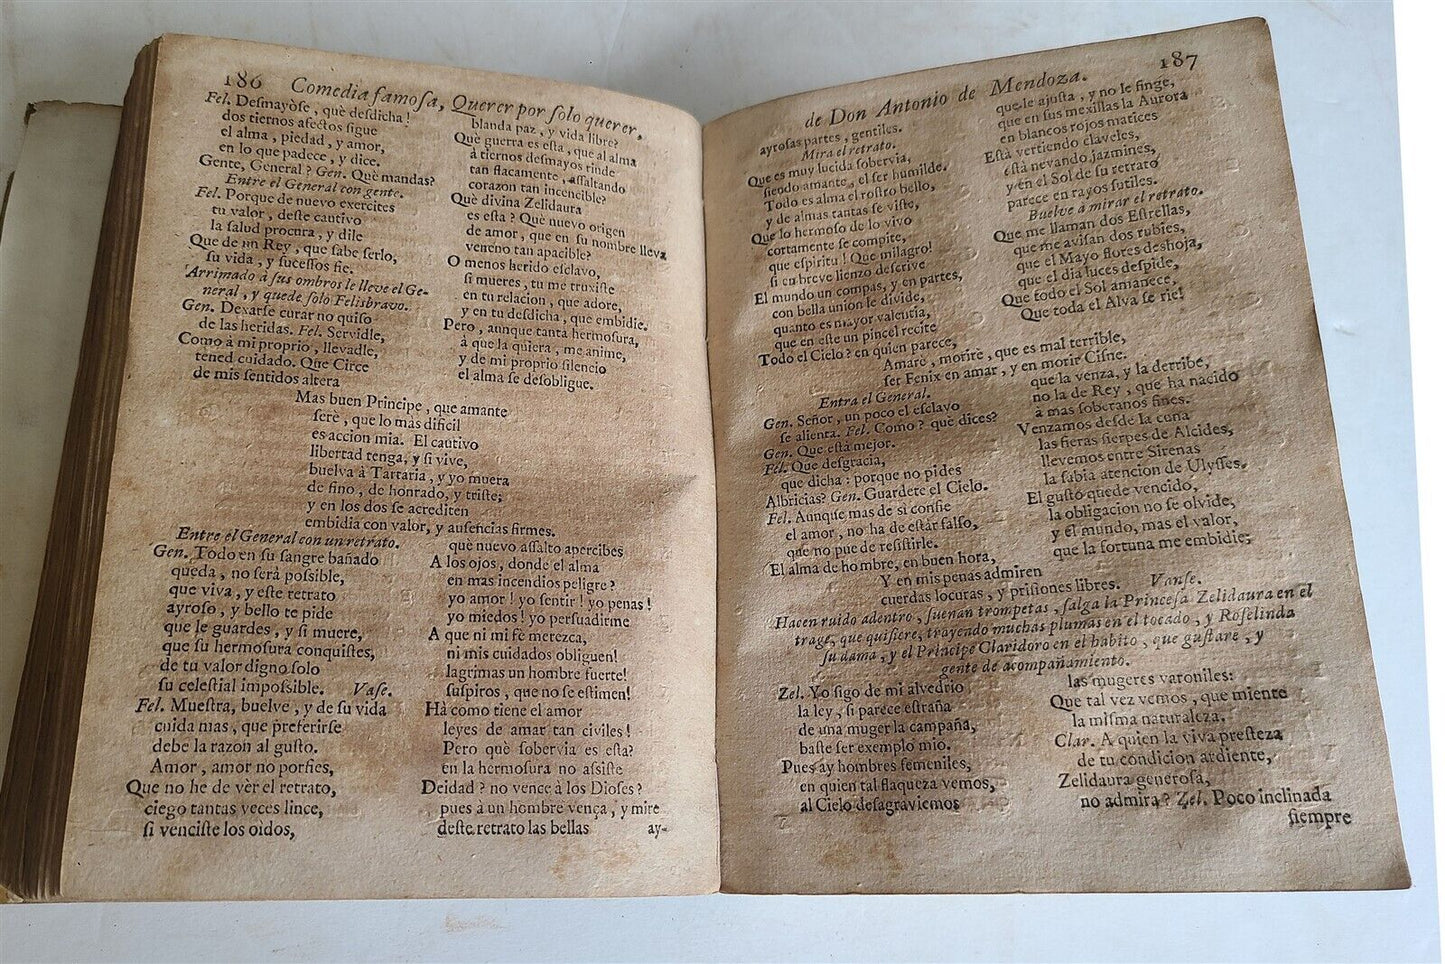 186 Comedia famosa, Querer por solo querer,
Fel. Desmayòse, què desdicha!
dos tiernos afectos sigue
el alma, piedad, y amor,
en lo que padece, y dice.
Gente, General? Gen. Què mandas?
Entre el General con gente.
Fel. Porque de nuevo exercites
tu valor, deste cautivo
la salud procura, y dile
Que de un Rey, que sabe serlo,
su vida, y sucessos fie.
Arrimado à sus ombros le lleve el Ge-
neral, y quede solo Felisbravo.
Gen. Dexarse curar no quiso
de las heridas. Fel. Servidle,
Como à mi proprio, llevadle,
tened cuidado. Que Circe
de mis sentidos altera
blanda paz, y vida libre?
Què guerra es esta, que al alma
à tiernos desmayos rinde
tan flacamente, assaltando
corazon tan incencible?
Què divina Zelidaura
es esta? Què nuevo origen
de amor, que en su nombre lleva
veneno tan apacible?
O menos herido esclavo,
si mueres, tu me truxiste
en tu relacion, que adore,
y en tu desdicha, que embidie.
Pero, aunque tanta hermosura,
à que la quiera, me anime,
y de mi proprio silencio
el alma se desobligue.
Mas buen Principe, que amante
serè, que lo mas dificil
es accion mia. El cautivo
libertad tenga, y si vive,
buelva à Tartaria, y yo muera
de fino, de honrado, y triste;
y en los dos se acrediten
embidia con valor, y ausencias firmes.
Entre el General con un retrato.
Gen. Todo en su sangre bañado
queda, no serà possible,
que viva, y este retrato
ayroso, y bello te pide
que le guardes, y si muere,
que su hermosura conquistes,
de tu valor digno solo
su celestial impossible. Vase.
Fel. Muestra, buelve, y de su vida
cuida mas, que preferirse
debe la razon al gusto.
Amor, amor no porfies,
Que no he de vèr el retrato,
ciego tantas veces lince,
si venciste los oìdos,
què nuevo assalto apercibes
A los ojos, donde el alma
en mas incendios peligre?
yo amor! yo sentir! yo penas!
yo miedos! yo persuadirme
A que ni mi fè merezca,
ni mis cuidados obliguen!
lagrimas un hombre fuerte!
suspiros, que no se estimen!
Hà como tiene el amor
leyes de amar tan civiles!
Pero què sobervia es esta?
en la hermosura no assiste
Deidad? no vence à los Dioses?
pues à un hombre vença, y mire
deste retrato las bellas
ay-
de Don Antonio de Mendoza. 187
ayrosas partes, gentiles.
Mira el retrato.
Que es muy lucida sobervia,
siendo amante, el ser humilde.
Todo es alma el rostro bello,
y de almas tantas se viste,
Que lo hermoso de lo vivo
cortamente se compite,
que espiritu! Que milagro!
si en breve lienzo descrive
El mundo un compas, y en partes,
con bella union le divide,
quanto es mayor valentia,
que en este un pincel recite
Todo el Cielo? en quien parece,
que le ajusta, y no le finge,
que en sus mexillas la Aurora
en blancos rojos matices
Està vertiendo claveles,
està nevando jazmines,
y en el Sol de su retrato
parece en rayos sutiles.
Buelve à mirar el retrato.
Que me llaman dos Estrellas,
que me avisan dos rubies,
que el Mayo flores deshoja,
que el dia luces despide,
Que todo el Sol amanece,
Que toda el Alva se rie!
Amarè, morirè, que es mal terrible,
ser Fenix en amar, y en morir Cisne.
Entra el General.
Gen. Señor, un poco el esclavo
se alienta. Fel. Como? què dices?
Gen. Que està mejor.
Fel. Que desgracia,
que dicha: porque no pides
Albricias? Gen. Guardete el Cielo.
Fel. Aunque mas de sì confie
el amor, no ha de estàr falso,
que no puede resistirle.
El alma de hombre, en buen hora,
que la venza, y la derribe,
no la de Rey, que ha nacido
à mas soberanos fines.
Venzamos desde la cuna
las fieras sierpes de Alcides,
llevemos entre Sirenas
la sabia atencion de Ulysses.
El gusto quede vencido,
la obligacion no se olvide,
y el mundo, mas el valor,
que la fortuna me embidie;
Y en mis penas admiren
cuerdas locuras, y prisiones libres. Vanse.
Hacen ruido adentro, suenan trompetas, salga la Princesa Zelidaura en el
trage, que quisiere, trayendo muchas plumas en el tocado, y Roselinda
su dama, y el Principe Claridoro en el habito, que gustare, y
gente de acompañamiento.
Zel. Yo sigo de mi alvedrio
la ley, si parece estraña
de una muger la campaña,
baste ser exemplo mio.
Pues ay hombres femeniles,
en quien tal flaqueza vemos,
al Cielo desagraviemos
las mugeres varoniles:
Que tal vez vemos, que miente
la misma naturaleza.
Clar. A quien la viva presteza
de tu condicion ardiente,
Zelidaura generosa,
no admira? Zel. Poco inclinada
siempre